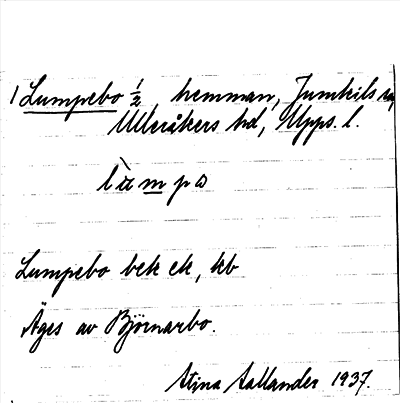 1 Lumpebo 1/2 hemman, Jumkils sn,
Ulleråkers hd, Upps. l.
lùmpα
Lumpebo bek ek, kb
Äges av Björnarbo.
Stina Sallander 1937.